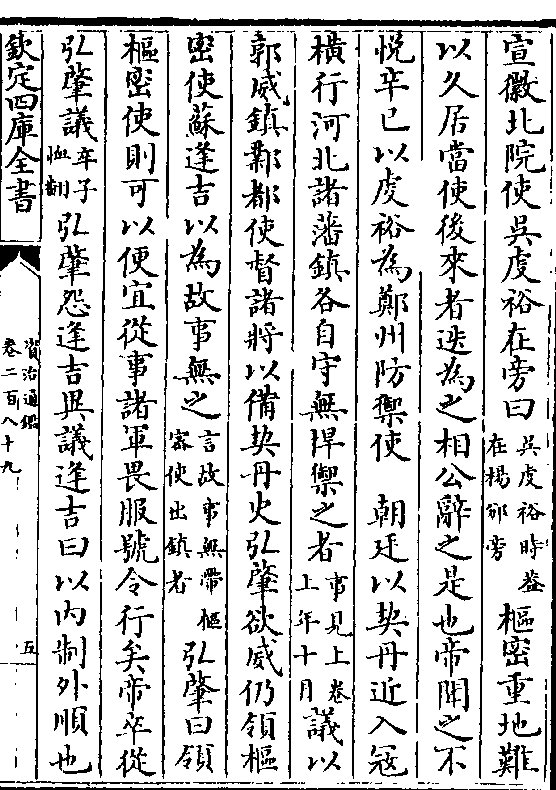 宣徽北院使吳䖍裕在旁曰吳䖍裕時葢在楊邠旁樞密重地難
以久居當使後來者迭為之相公辭之是也帝聞之不
悅辛巳以䖍裕為鄭州防禦使　朝廷以契丹近入冦
橫行河北諸藩鎮各自守無捍禦之者事見上卷上年十月議以
郭威鎮鄴都使督諸將以備契丹史弘肇欲威仍領樞
密使蘇逢吉以為故事無之言故事無帶樞密使出鎮者弘肇曰領
樞密使則可以便宜從事諸軍畏服號令行矣帝卒從
弘肇議卒子恤翻弘肇怨逢吉異議逢吉曰以内制外順也
欽定四庫全書
資治通鑑
卷二百八十九
五